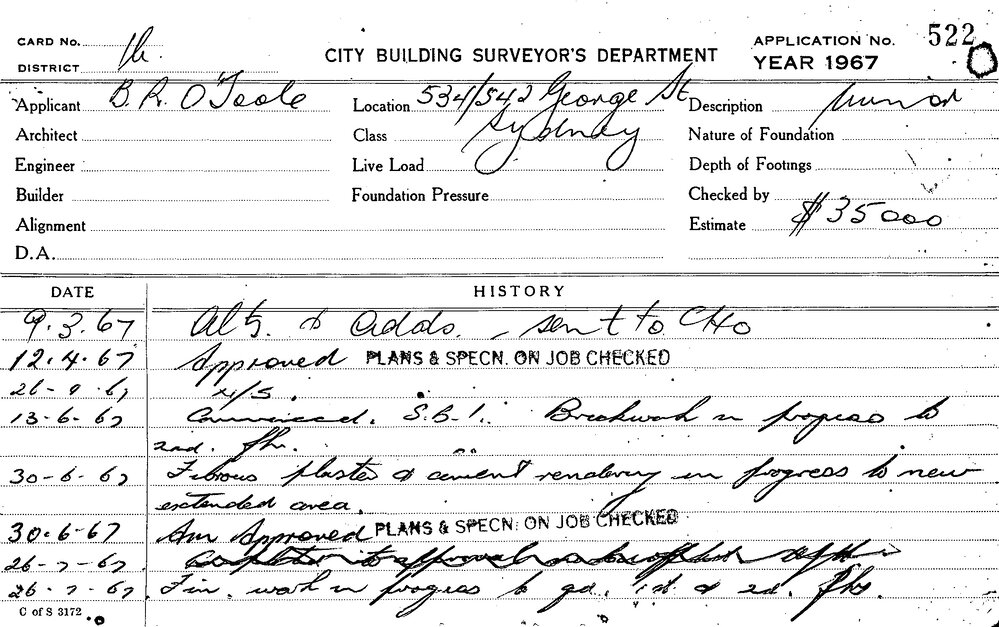 CARD No.
DISTRICT
CITY BUILDING SURVEYOR'S DEPARTMENT
APPLICATION No. 522
YEAR 1967
Applicant B.R. O'Toole
Location 534/542 George St
Sydney
Description
Architect
Class
Nature of Foundation
Engineer
Live Load
Depth of Footings
Builder
Foundation Pressure
Checked by
Alignment
Estimate $35000
D.A.
DATE HISTORY
9.3.67 Alts. & adds. - sent to CHO
12.4.67 Approved PLANS & SPECN. ON JOB CHECKED
N/S.
13-6-67 Commenced. S.B.I. Brickwork in progress to
2nd. flr.
30-6-67 Fibrous plaster & cement rendering in progress to new
extended area.
30.6-67 Am Approved PLANS & SPECN. ON JOB CHECKED
26-7-67
26-7-67. Fin. work in progress to gd. 1st & 2nd. flrs.
C of S 3172